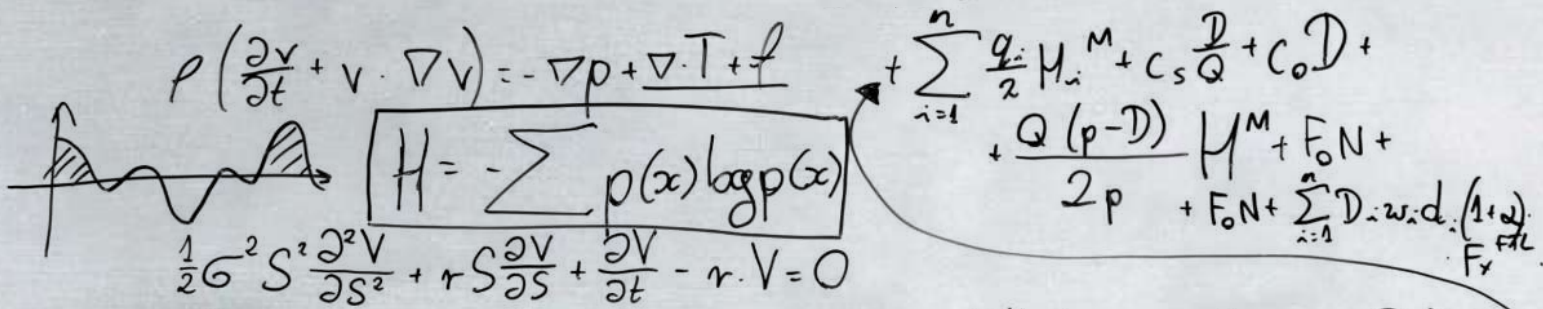 ρ(∂v/∂t + v · ∇v) = -∇p + ∇·T + f
H = -∑ p(x) log p(x)
½σ²S² ∂²V/∂S² + rS ∂V/∂S + ∂V/∂t - r·V = 0
+ ∑ᵢ₌₁ⁿ qᵢ/2 Hᵢᴹ + Cₛ D/Q + C₀D +
+ Q(p-D)/2p Hᴹ + F₀N +
+ F₀N + ∑ᵢ₌₁ⁿ Dᵢwᵢdᵢ(1+α)